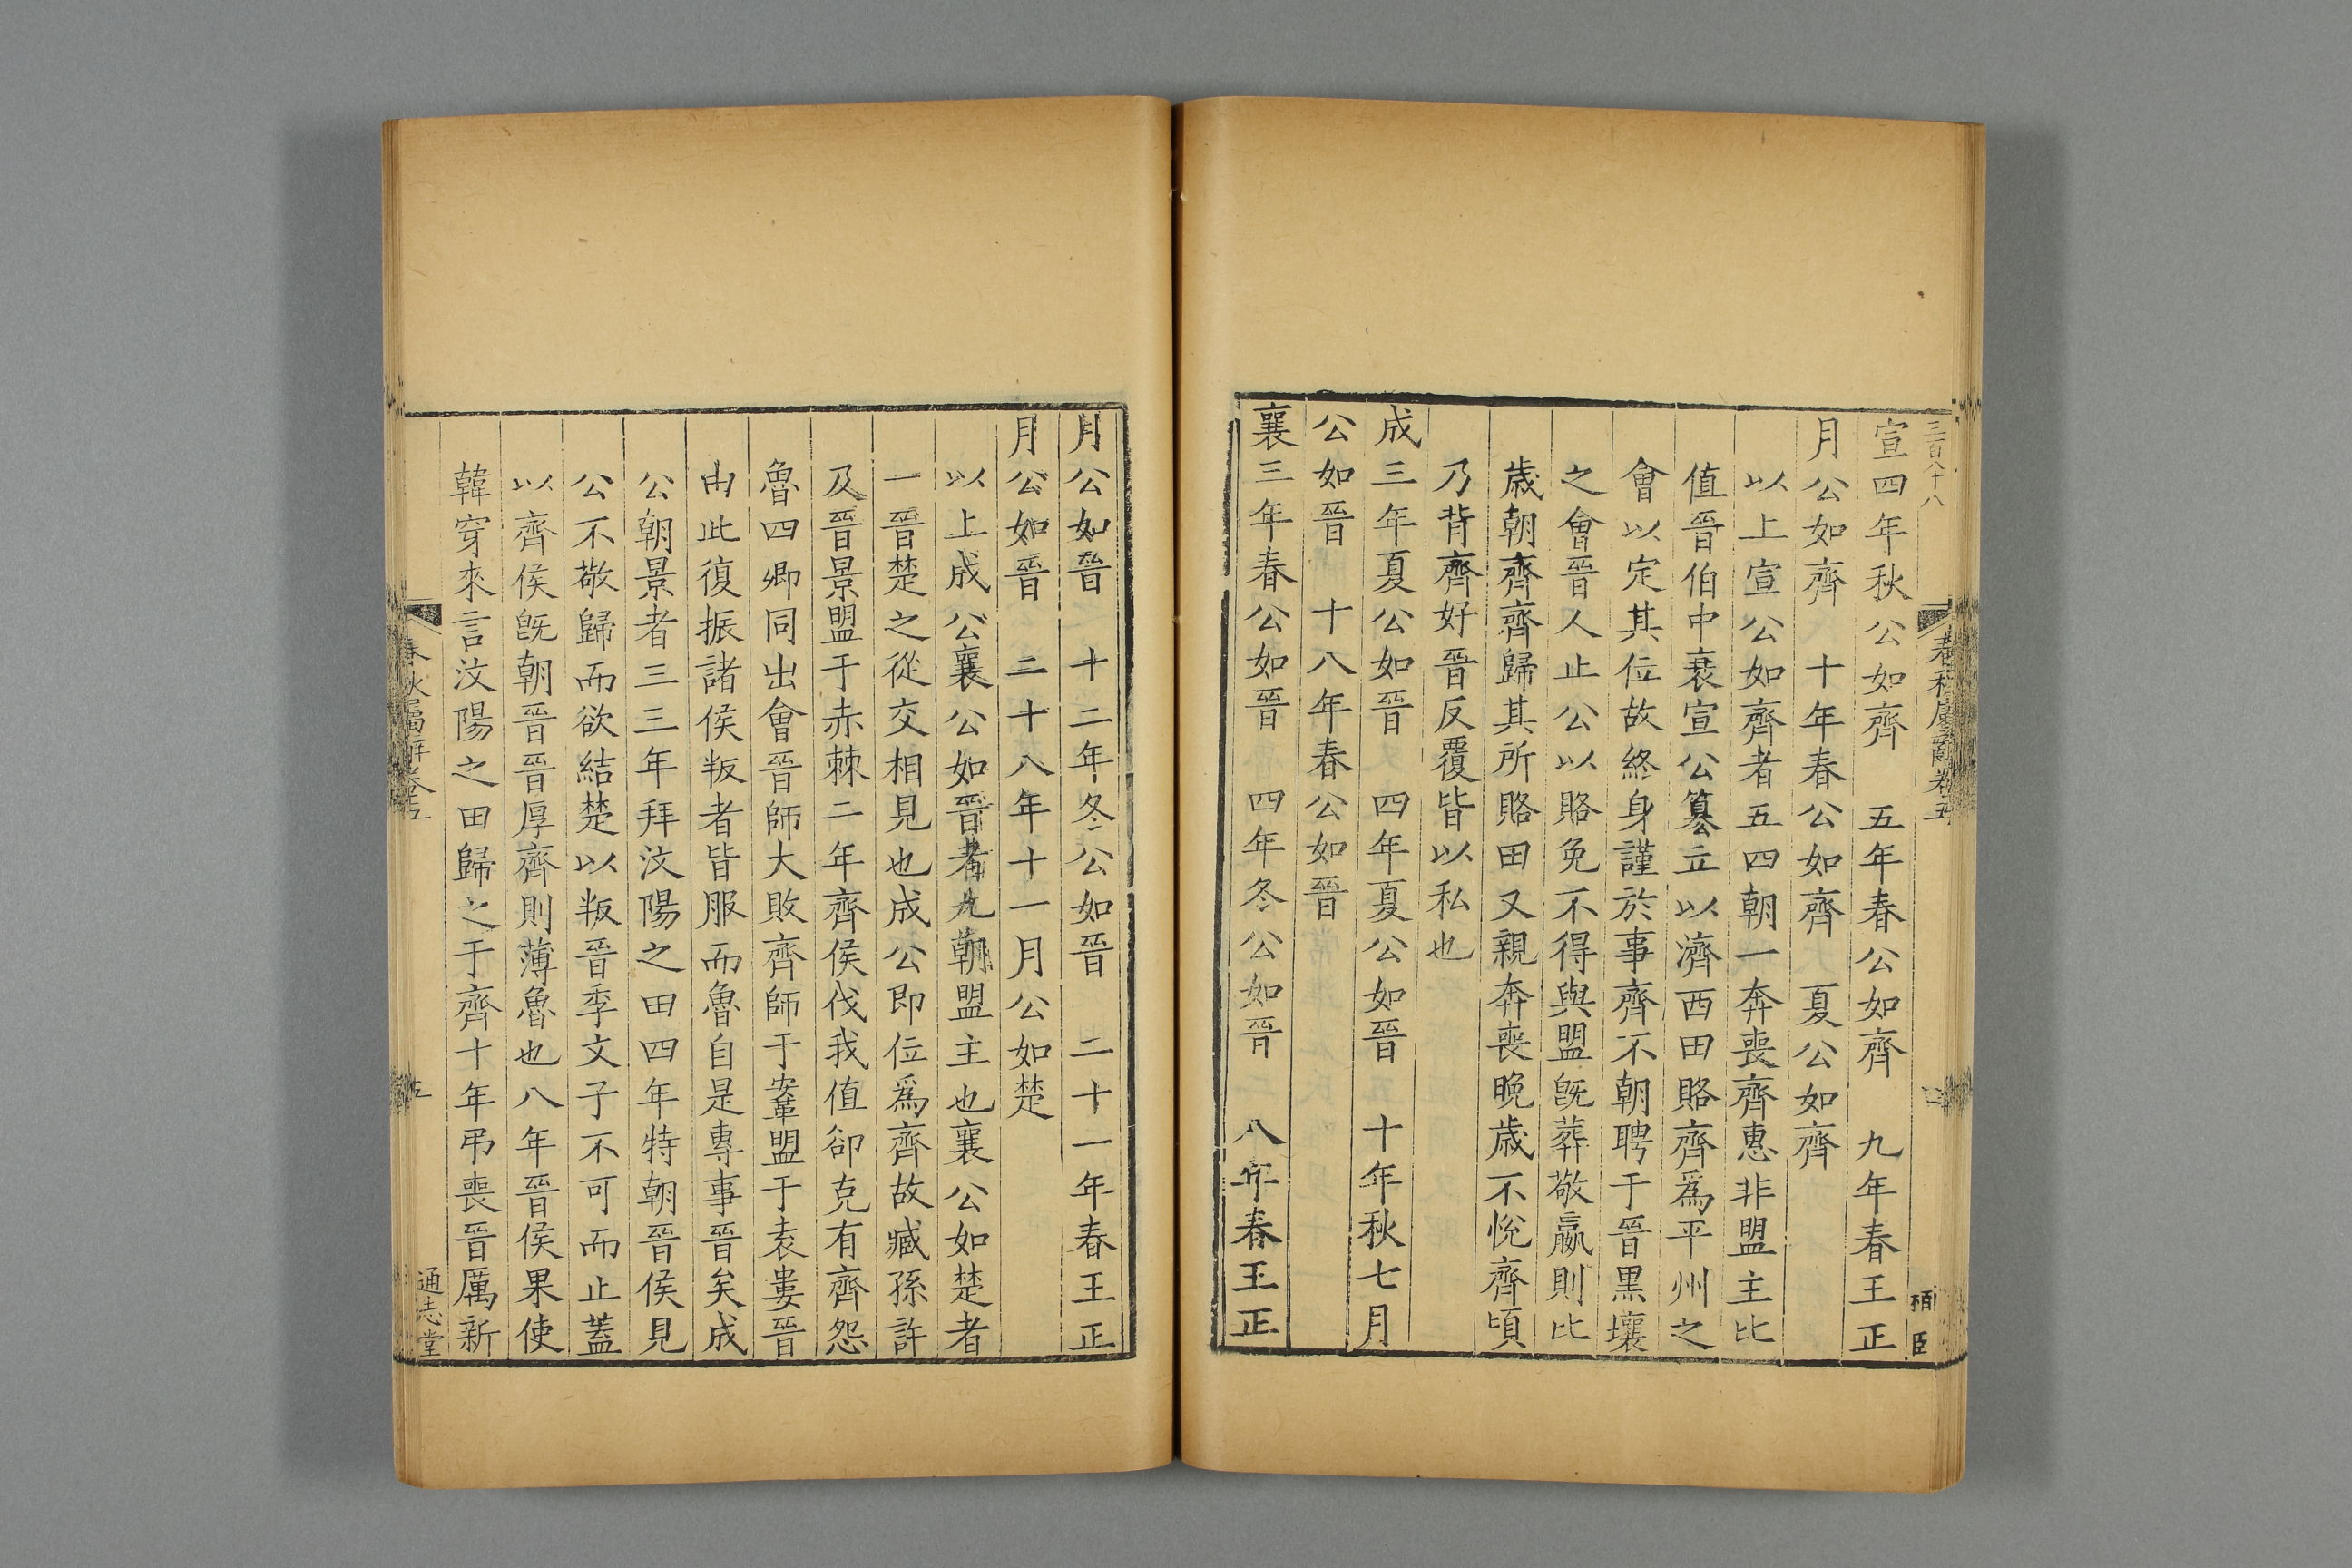 三百八十八
春秋屬辭卷五
四
栢臣
宣四年秋公如齊　五年春公如齊　九年春王正
月公如齊　十年春公如齊　夏公如齊
以上宣公如齊者五四朝一奔喪齊惠非盟主比
值晉伯中衰宣公篡立以濟西田賂齊爲平州之
會以定其位故終身謹於事齊不朝聘于晉黒壤
之會晉人止公以賂免不得與盟旣葬敬嬴則比
歳朝齊齊歸其所賂田又親奔喪晚歳不恱齊頃
乃背齊好晉反覆皆以私也
成三年夏公如晉　四年夏公如晉　十年秋七月
公如晉　十八年春公如晉
襄三年春公如晉　四年冬公如晉　八年春王正
月公如晉　十二年冬公如晉　二十一年春王正
月公如晉　二十八年十一月公如楚
以上成公襄公如晉者九朝盟主也襄公如楚者
一晉楚之從交相見也成公即位爲齊故臧孫許
及晉景盟于赤棘二年齊侯伐我值郤克有齊怨
魯四卿同出會晉師大敗齊師于鞌盟于袁婁晉
由此復振諸侯叛者皆服而魯自是專事晉矣成
公朝景者三三年拜汶陽之田四年特朝晉侯見
公不敬歸而欲結楚以叛晉季文子不可而止蓋
以齊侯旣朝晉晉厚齊則薄魯也八年晉侯果使
韓穿來言汶陽之田歸之于齊十年弔喪晉厲新
春秋屬辭卷五
五
通志堂